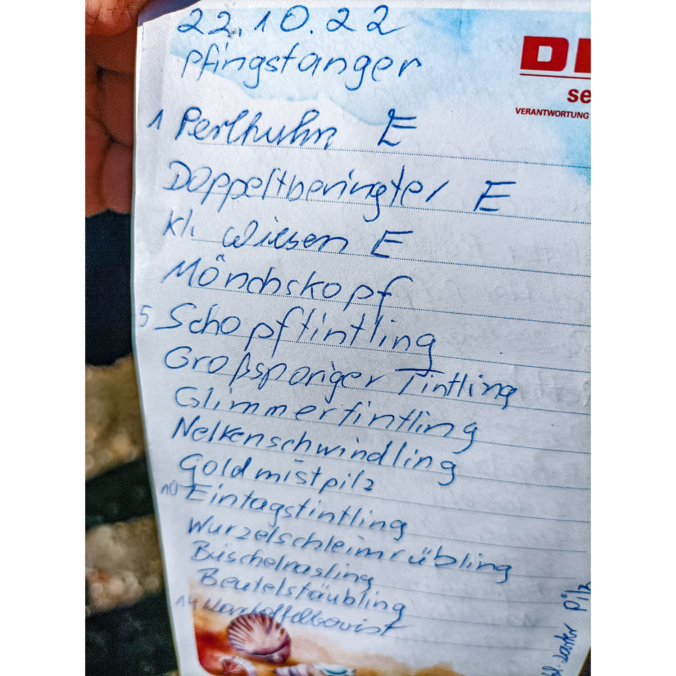 22.10.22
Pfingstanger
DI
se
VERANTWORTUNG
1 Perlhuhn E
Doppeltberingter E
kl. Wiesen E
Mönchskopf
5 Schopftintling
Großsporiger Tintling
Glimmertintling
Nelkenschwindling
Goldmistpilz
10 Eintagstintling
Wurzelschleimrübling
Büschelrasling
Beutelstäubling
14 Kartoffelbovist
Pilz